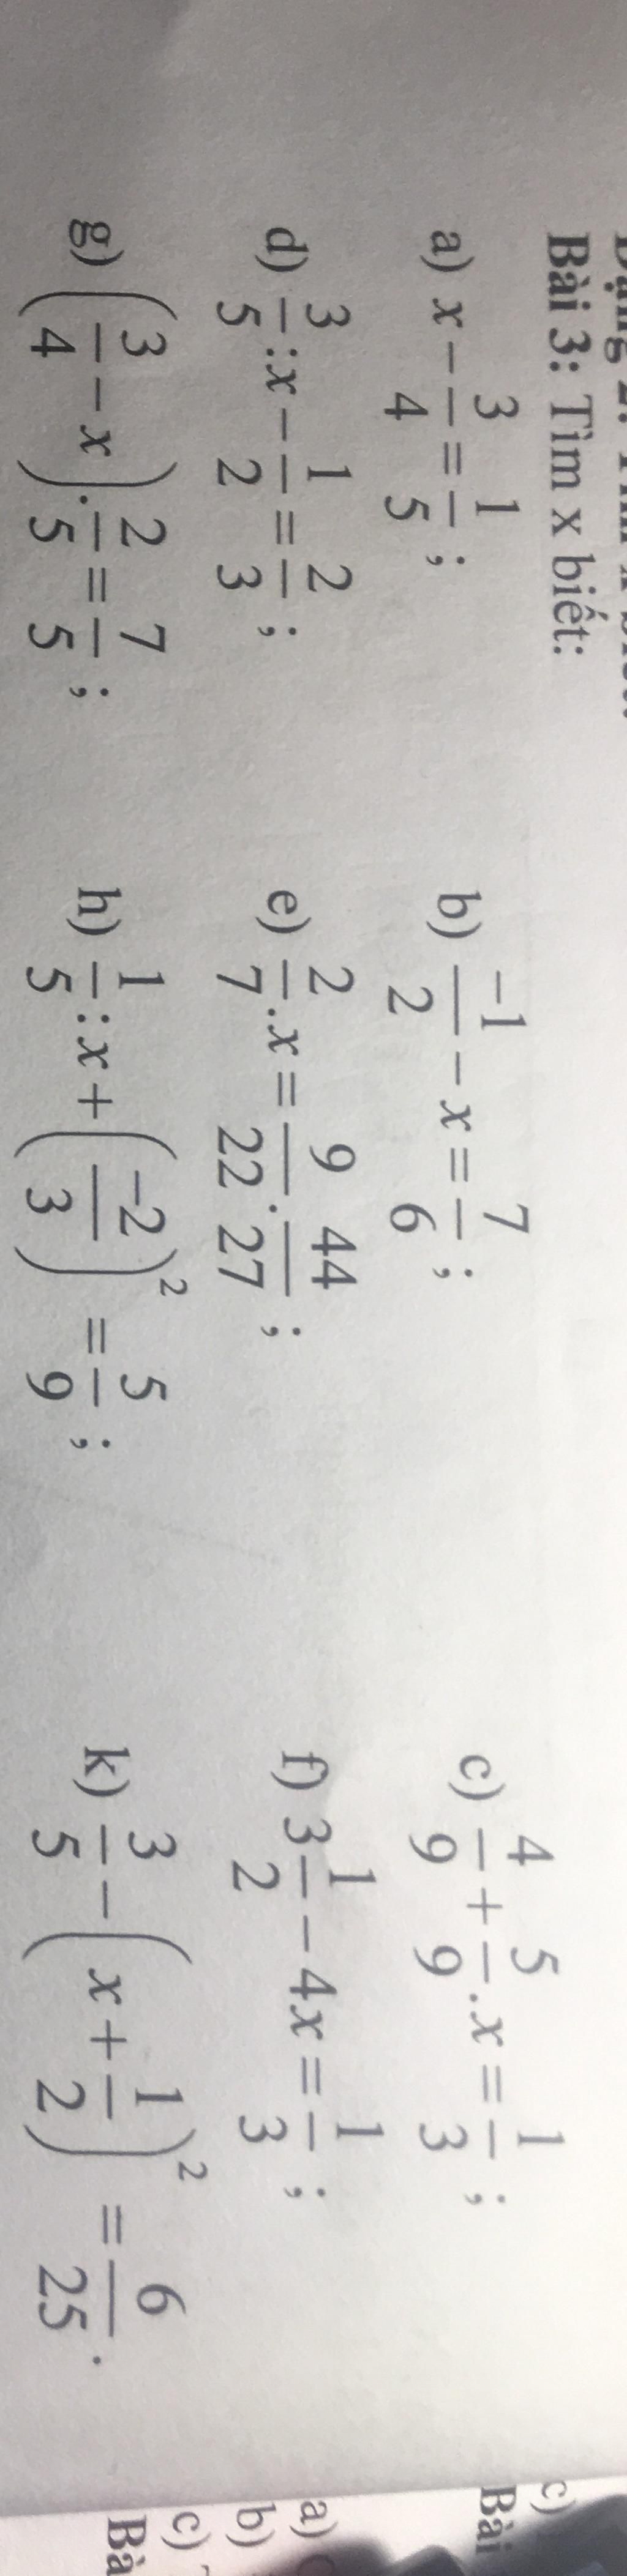 Bài 3: Tìm x biết:
a) x − 3/4 = 1/5 ; b) −1/2 − x = 7/6 ; c) 4/9 + 5/9 . x = 1/3 ;
d) 3/5 : x − 1/2 = 2/3 ; e) 2/7 . x = 9/22 . 44/27 ; f) 3 1/2 − 4x = 1/3 ;
g) (3/4 − x) . 2/5 = 7/5 ; h) 1/5 : x + (−2/3)² = 5/9 ; k) 3/5 − (x + 1/2)² = 6/25 .
c)
Bài
a)
b)
c)